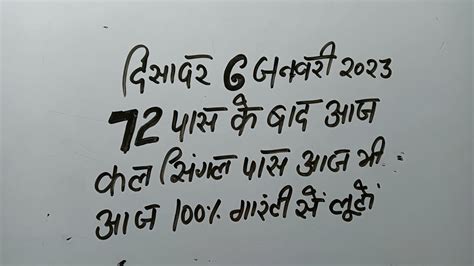 दिसावर 6 जनवरी 2023
72 पास के बाद आज
कल सिंगल पास आज भी
आज 100% गारंटी सें लूटों